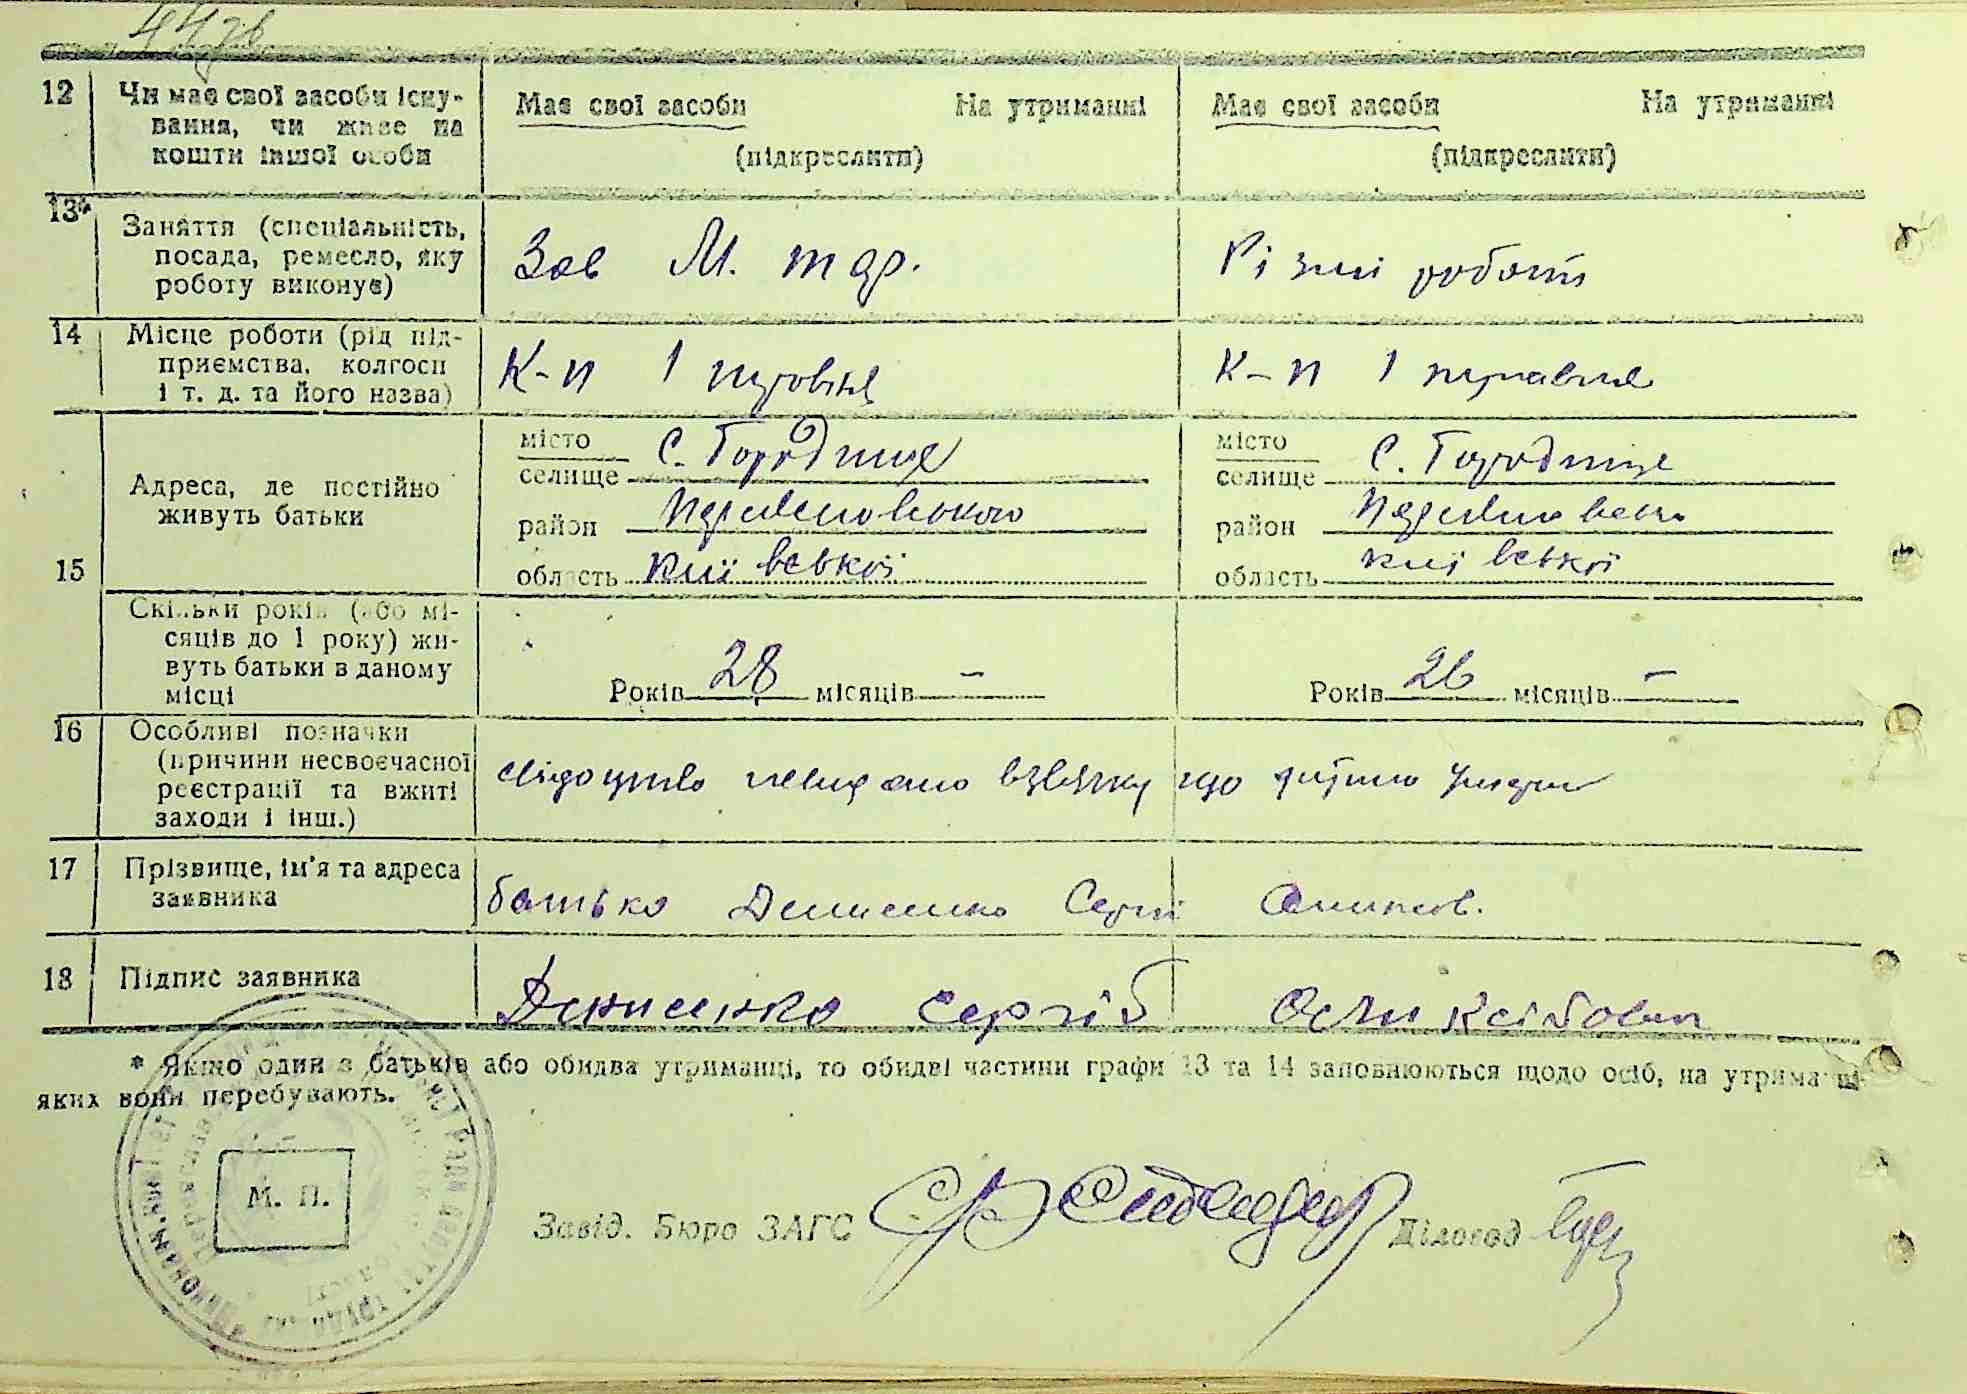 44зв
12 Чи має свої засоби існу- Має свої засоби На утриманні Має свої засоби На утриманні
вання, чи живе на
кошти іншої особи (підкреслити) (підкреслити)
13*
Заняття (спеціальність,
посада, ремесло, яку Зав М. тар. Різні роботи
роботу виконує)
14 Місце роботи (рід під-
приємства, колгосп К-п 1 К-п 1
і т. д. та його назва)
місто С. Городище місто С. Городище
Адреса, де постійно селище селище
живуть батьки район район
15 область Київської область Київської
Скільки років (або мі-
сяців до 1 року) жи-
вуть батьки в даному
місці Років 28 місяців – Років 26 місяців –
16 Особливі позначки
(причини несвоєчасної
реєстрації та вжиті свідоцтво невидано взвязку що дитина
заходи і інш.)
17 Прізвище, ім'я та адреса
заявника батько Денисенко Сергій
18 Підпис заявника Денисенко Сергій
* Якщо один з батьків або обидва утриманці, то обидві частини графи 13 та 14 заповнюються щодо осіб, на утриманні
яких вони перебувають.
М. П.
Завід. Бюро ЗАГС Діловод